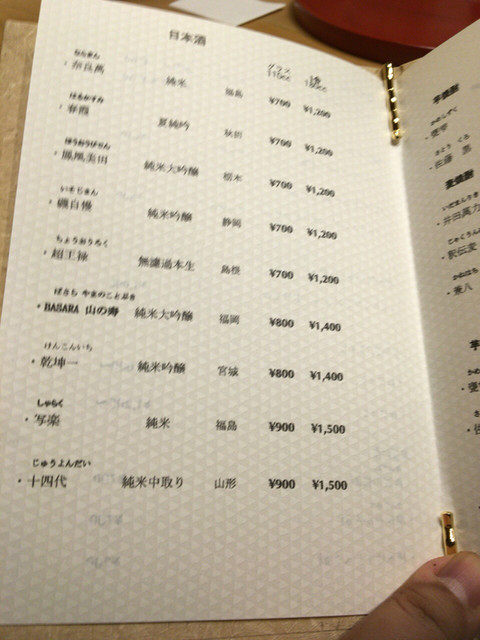 日本酒
グラス 1合
110cc 180cc
ならまん
・奈良萬 純米 福島 ¥700 ¥1,200
はるかすみ
・春霞 夏純吟 秋田 ¥700 ¥1,200
ほうおうびでん
・鳳凰美田 純米大吟醸 栃木 ¥700 ¥1,200
いそじまん
・磯自慢 純米吟醸 静岡 ¥700 ¥1,200
ちょうおうろく
・超王禄 無濾過本生 島根 ¥700 ¥1,200
ばさら やまのことぶき
・BASARA 山の寿 純米大吟醸 福岡 ¥800 ¥1,400
けんこんいち
・乾坤一 純米吟醸 宮城 ¥800 ¥1,400
しゃらく
・写楽 純米 福島 ¥900 ¥1,500
じゅうよんだい
・十四代 純米中取り 山形 ¥900 ¥1,500
芋焼酎
さとう くろ
・佐藤 黒
麦焼酎
・井田萬力
・釈伝変
かねはち
・兼八